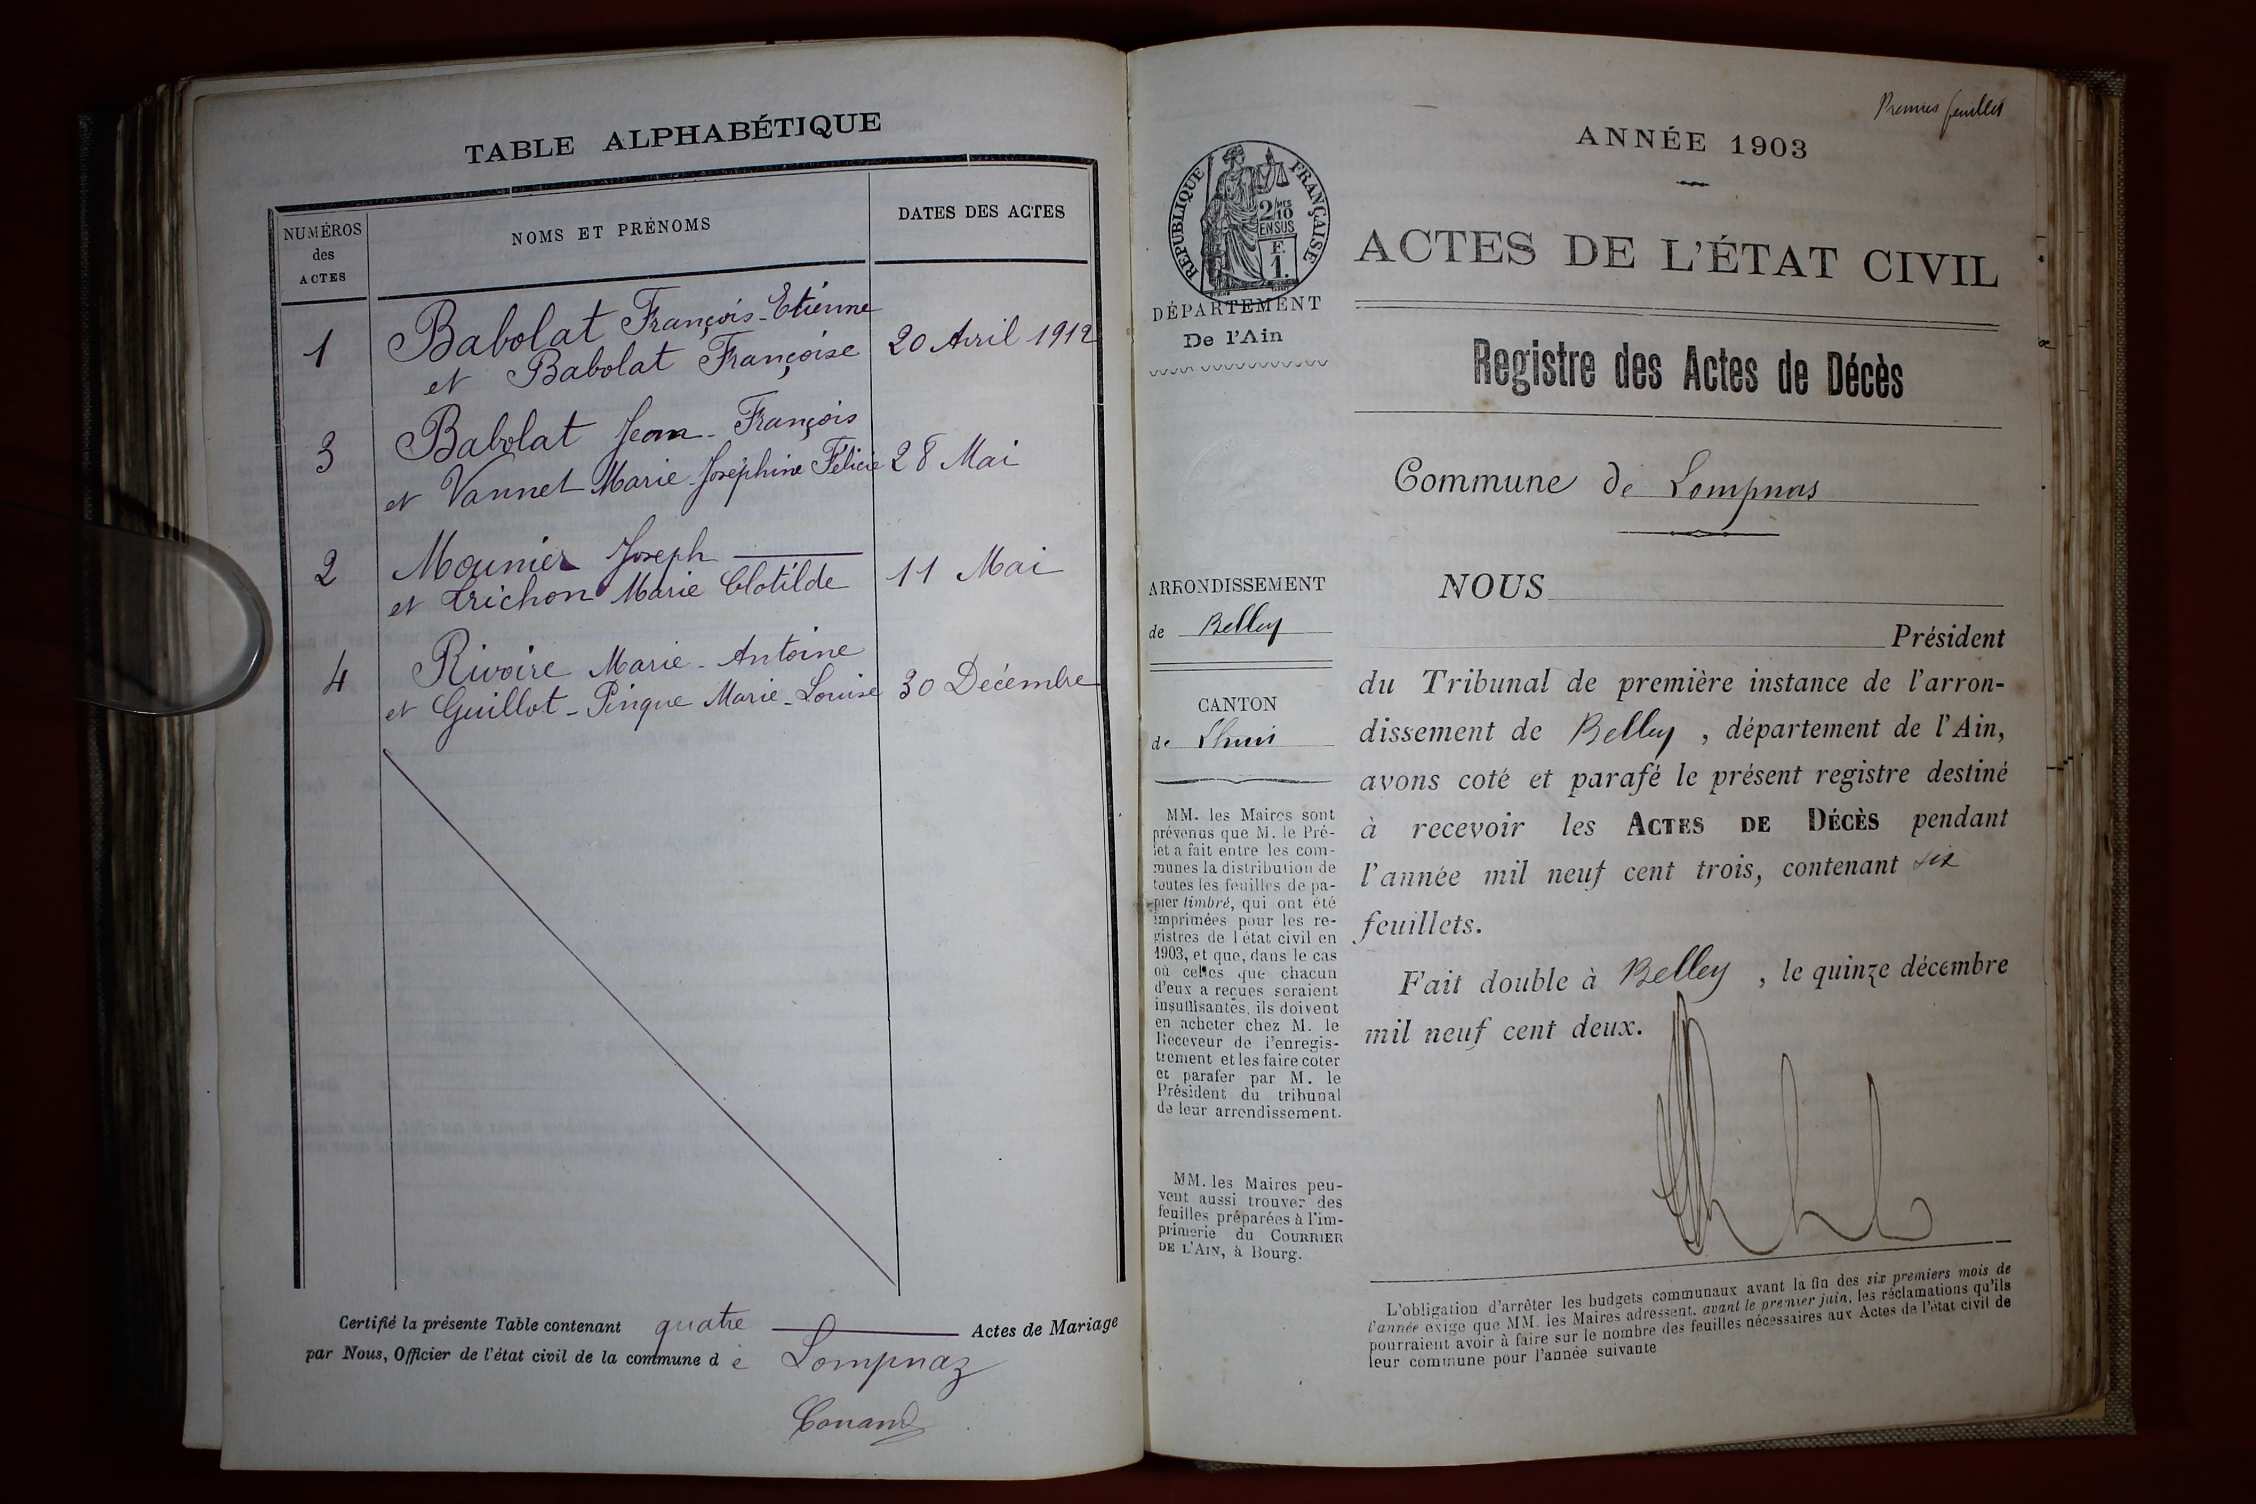 TABLE ALPHABÉTIQUE
NUMÉROS
des
ACTES
NOMS ET PRÉNOMS
DATES DES ACTES
1 Babolat François-Etienne
et Babolat Françoise 20 Avril 1912
3 Babolat Jean-François
et Vannet Marie-Joséphine Félicie 28 Mai
2 Mounier Joseph
et Trichon Marie Clotilde 11 Mai
4 Rivoire Marie-Antoine
et Guillot-Pingue Marie-Louise 30 Décembre
Certifié la présente Table contenant quatre Actes de Mariage
par Nous, Officier de l'état civil de la commune de Lompnaz
Conand
Premier feuillet
ANNÉE 1903
RÉPUBLIQUE FRANÇAISE
2/10
EN SUS
F.
1.
DÉPARTEMENT
De l'Ain
ACTES DE L'ÉTAT CIVIL
Registre des Actes de Décès
Commune de Lompnas
ARRONDISSEMENT
de Belley
CANTON
de Lhuis
MM. les Maires sont
prévenus que M. le Pré-
fet a fait entre les com-
munes la distribution de
toutes les feuilles de pa-
pier timbré, qui ont été
imprimées pour les re-
gistres de l'état civil en
1903, et que, dans le cas
où celles que chacun
d'eux a reçues seraient
insuffisantes, ils doivent
en acheter chez M. le
Receveur de l'enregis-
trement et les faire coter
et parafer par M. le
Président du tribunal
de leur arrondissement.
MM. les Maires peu-
vent aussi trouver des
feuilles préparées à l'im-
primerie du COURRIER
DE L'AIN, à Bourg.
NOUS
Président
du Tribunal de première instance de l'arron-
dissement de Belley, département de l'Ain,
avons coté et parafé le présent registre destiné
à recevoir les ACTES DE DÉCÈS pendant
l'année mil neuf cent trois, contenant six
feuillets.
Fait double à Belley, le quinze décembre
mil neuf cent deux.
L'obligation d'arrêter les budgets communaux avant la fin des six premiers mois de
l'année exige que MM. les Maires adressent, avant le premier juin, les réclamations qu'ils
pourraient avoir à faire sur le nombre des feuilles nécessaires aux Actes de l'état civil de
leur commune pour l'année suivante